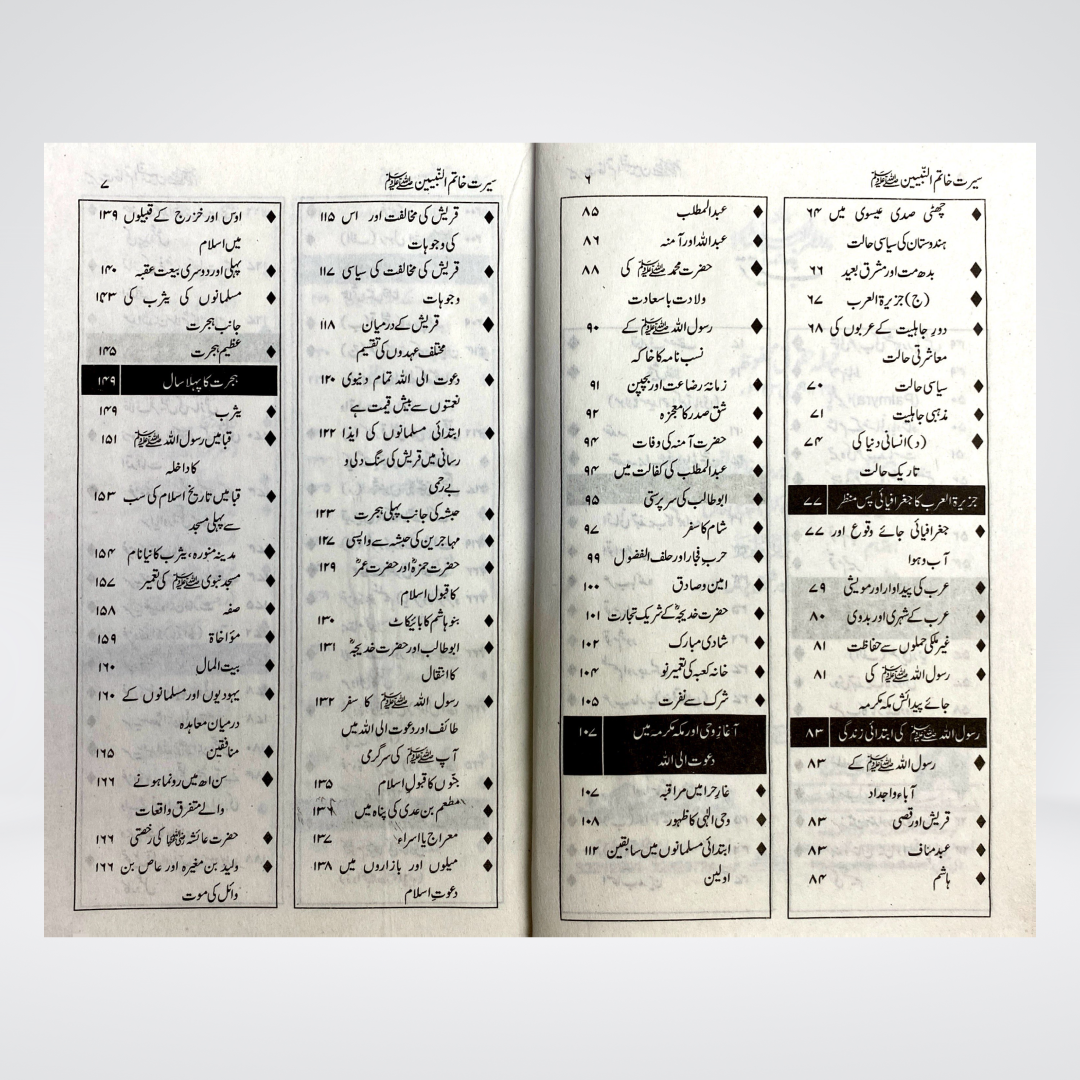 سیرت خاتم النّبیین ﷺ ۶
چھٹی صدی عیسوی میں ۶۴
ہندوستان کی سیاسی حالت
بدھ مت اور مشرق بعید ۶۶
(ج) جزیرۃ العرب ۶۷
دورِ جاہلیت کے عربوں کی ۶۸
معاشرتی حالت
سیاسی حالت ۷۰
مذہبی جاہلیت ۷۱
(د) انسانی دنیا کی ۷۴
تاریک حالت
جزیرۃ العرب کا جغرافیائی پس منظر ۷۷
جغرافیائی جائے وقوع اور ۷۷
آب و ہوا
عرب کی پیداوار اور مویشی ۷۹
عرب کے شہری اور بدوی ۸۰
غیر ملکی حملوں سے حفاظت ۸۱
رسول اللہ ﷺ کی ۸۱
جائے پیدائش مکہ مکرمہ
رسول اللہ ﷺ کی ابتدائی زندگی ۸۳
رسول اللہ ﷺ کے ۸۳
آباء و اجداد
قریش اور قصی ۸۳
عبد مناف ۸۳
ہاشم ۸۴
عبدالمطلب ۸۵
عبداللہ اور آمنہ ۸۶
حضرت محمد ﷺ کی ۸۸
ولادت باسعادت
رسول اللہ ﷺ کے ۹۰
نسب نامہ کا خاکہ
زمانۂ رضاعت اور بچپن ۹۱
شق صدر کا معجزہ ۹۲
حضرت آمنہ کی وفات ۹۴
عبدالمطلب کی کفالت میں ۹۴
ابوطالب کی سرپرستی ۹۵
شام کا سفر ۹۷
حربِ فجار اور حلف الفضول ۹۹
امین و صادق ۱۰۰
حضرت خدیجہؓ کے شریک تجارت ۱۰۱
شادی مبارک ۱۰۲
خانہ کعبہ کی تعمیر نو ۱۰۴
شرک سے نفرت ۱۰۵
آغازِ وحی اور مکہ مکرمہ میں ۱۰۷
دعوت الی اللہ
غارِ حرا میں مراقبہ ۱۰۷
وحی الٰہی کا ظہور ۱۰۸
ابتدائی مسلمانوں میں سابقین ۱۱۲
اولین
سیرت خاتم النّبیین ﷺ ۷
قریش کی مخالفت اور اس ۱۱۵
کی وجوہات
قریش کی مخالفت کی سیاسی ۱۱۷
وجوہات
قریش کے درمیان ۱۱۸
مختلف عہدوں کی تقسیم
دعوت الی اللہ تمام دنیوی ۱۲۰
نعمتوں سے بیش قیمت ہے
ابتدائی مسلمانوں کی ایذا ۱۲۲
رسانی میں قریش کی سنگ دلی و
بے رحمی
حبشہ کی جانب پہلی ہجرت ۱۲۳
مہاجرین کی حبشہ سے واپسی ۱۲۷
حضرت حمزہؓ اور حضرت عمرؓ ۱۲۹
کا قبول اسلام
بنو ہاشم کا بائیکاٹ ۱۳۰
ابوطالب اور حضرت خدیجہؓ ۱۳۱
کا انتقال
رسول اللہ ﷺ کا سفر ۱۳۲
طائف اور دعوت الی اللہ میں
آپ ﷺ کی سرگرمی
جنّوں کا قبولِ اسلام ۱۳۵
مطعم بن عدی کی پناہ میں ۱۳۶
معراج یا اسراء ۱۳۷
میلوں اور بازاروں میں ۱۳۸
دعوتِ اسلام
اوس اور خزرج کے قبیلوں ۱۳۹
میں اسلام
پہلی اور دوسری بیعت عقبہ ۱۴۰
مسلمانوں کی یثرب کی ۱۴۳
جانب ہجرت
عظیم ہجرت ۱۴۵
ہجرت کا پہلا سال ۱۴۹
یثرب ۱۴۹
قبا میں رسول اللہ ﷺ ۱۵۱
کا داخلہ
قبا میں تاریخ اسلام کی سب ۱۵۳
سے پہلی مسجد
مدینہ منورہ، یثرب کا نیا نام ۱۵۴
مسجد نبوی ﷺ کی تعمیر ۱۵۷
صفہ ۱۵۸
مؤاخاۃ ۱۵۹
بیت المال ۱۶۰
یہودیوں اور مسلمانوں کے ۱۶۰
درمیان معاہدہ
منافقین ۱۶۵
سن ۱ھ میں رونما ہونے ۱۶۶
والے متفرق واقعات
حضرت عائشہ رضی اللہ عنہا کی رخصتی ۱۶۶
ولید بن مغیرہ اور عاص بن ۱۶۶
وائل کی موت